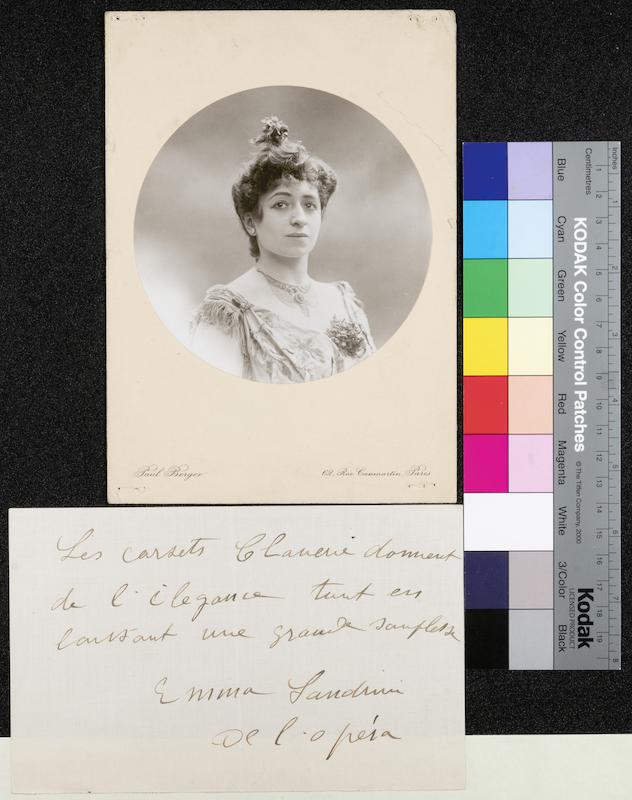 Paul Berger
62, Rue Caumartin, Paris
Les corsets Claverie donnent
de l'élégance tout en
laissant une grande souplesse
Emma Sandrini
de l'opéra
Inches
Centimetres
KODAK Color Control Patches © The Tiffen Company, 2000
Kodak
LICENSED PRODUCT
Blue
Cyan
Green
Yellow
Red
Magenta
White
3/Color
Black
1 2 3 4 5 6 7 8
1 2 3 4 5 6 7 8 9 10 11 12 13 14 15 16 17 18 19